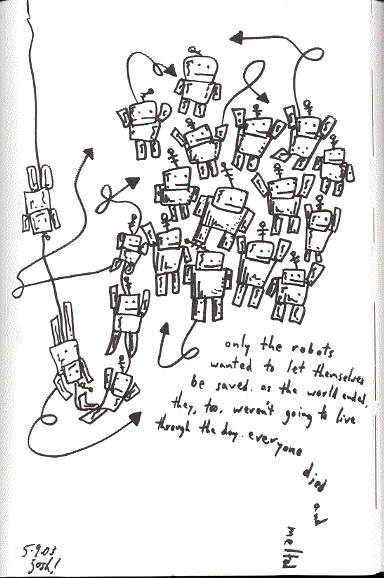 only the robots
wanted to let themselves
be saved. as the world ended,
they, too, weren't going to live
through the day. everyone
died and
melted
5.9.03
josh!